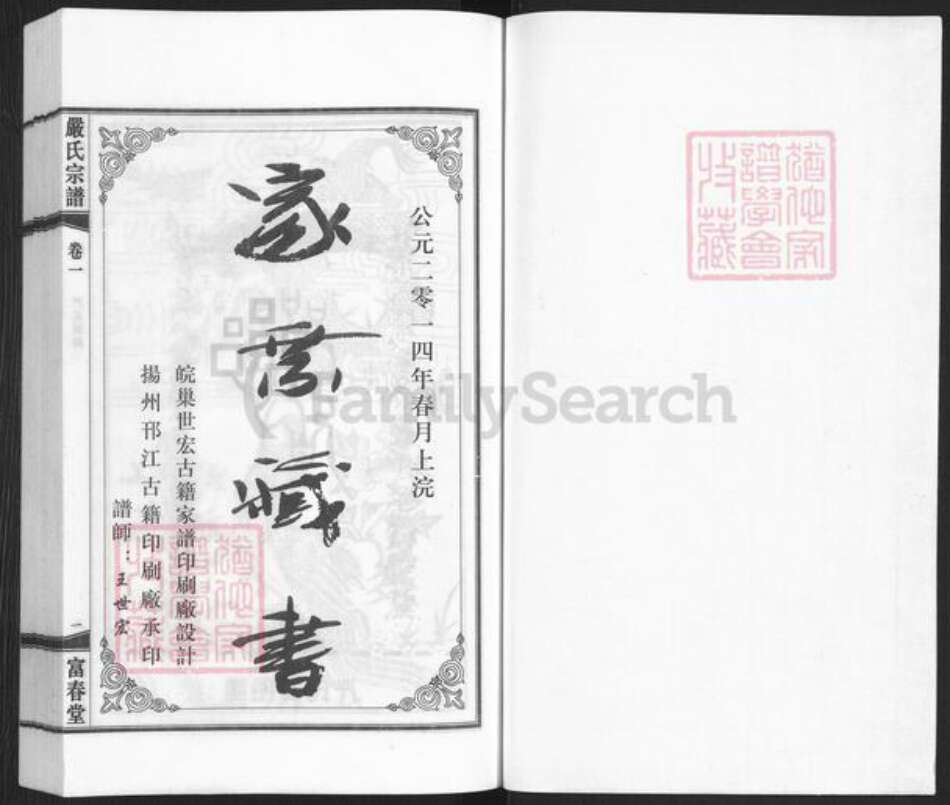 猶他家
譜學會
收藏
公元二零一四年春月上浣
家乘藏書
皖巢世宏古籍家譜印刷廠設計
揚州邗江古籍印刷廠承印
譜師：王世宏
嚴氏宗譜
卷一
二
富春堂
猶他家
譜學會
收藏
FamilySearch